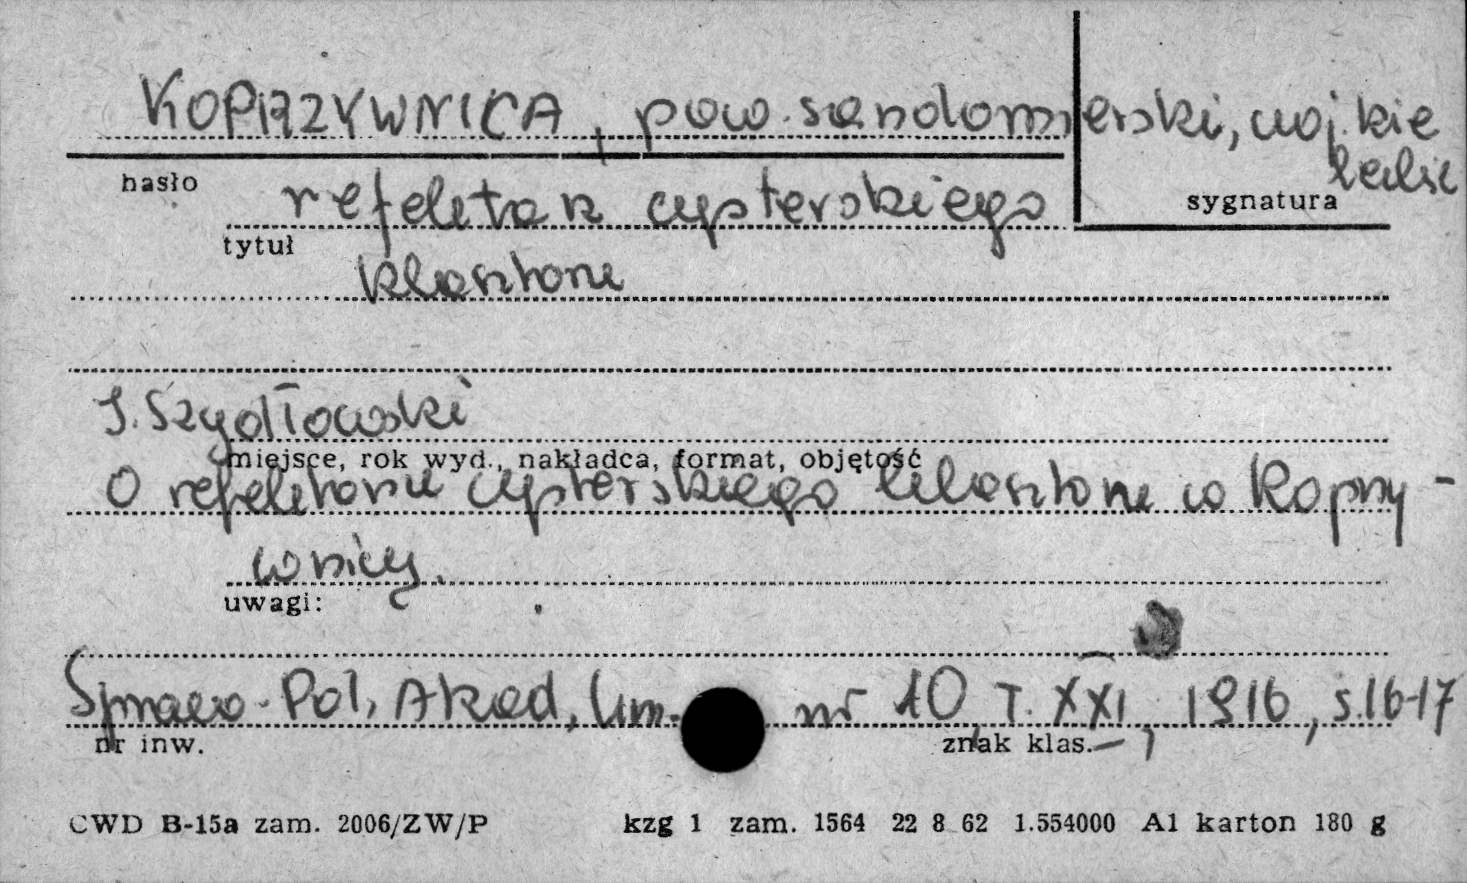 KOPRZYWNICA, pow. sandomierski, woj. kie
leckie
hasło
sygnatura
refektarz cysterskiego
tytuł
klasztoru
J. Szydłowski
miejsce, rok wyd., nakładca, format, objętość
O refektarzu cysterskiego klasztoru w Koprzy-
wnicy.
uwagi:
Sprawo. Pol. Akad. Um. nr 10 T. XXI, 1916, s. 16-17
nr inw.
znak klas.
CWD B-15a zam. 2006/ZW/P kzg 1 zam. 1564 22 8 62 1.554000 A1 karton 180 g